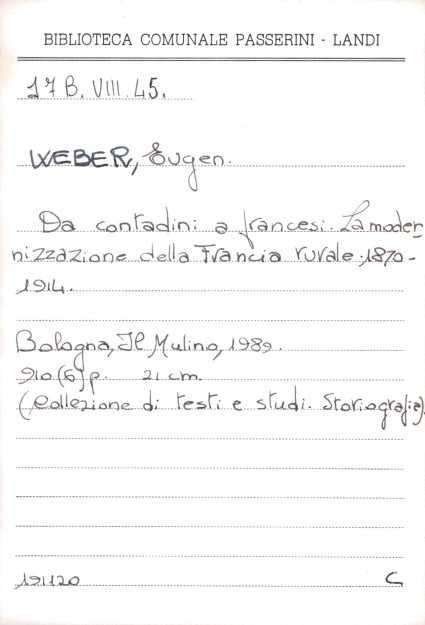 BIBLIOTECA COMUNALE PASSERINI - LANDI
17 B. VIII. 45.
WEBER, Eugen.
Da contadini a francesi. La moder-
nizzazione della Francia rurale: 1870-
1914.
Bologna, Il Mulino, 1989.
910 (6) p. 21 cm.
(Collezione di testi e studi. Storiografia).
191120 C